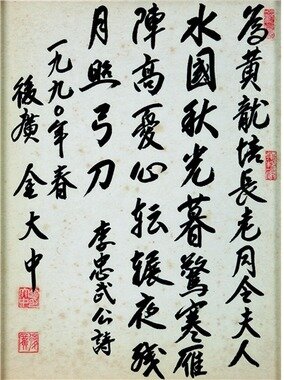 為黃龍培長老同令夫人
水國秋光暮驚寒雁
陣高憂心転輾夜残
月照弓刀
李忠武公詩
一九九〇年春
後廣 金大中